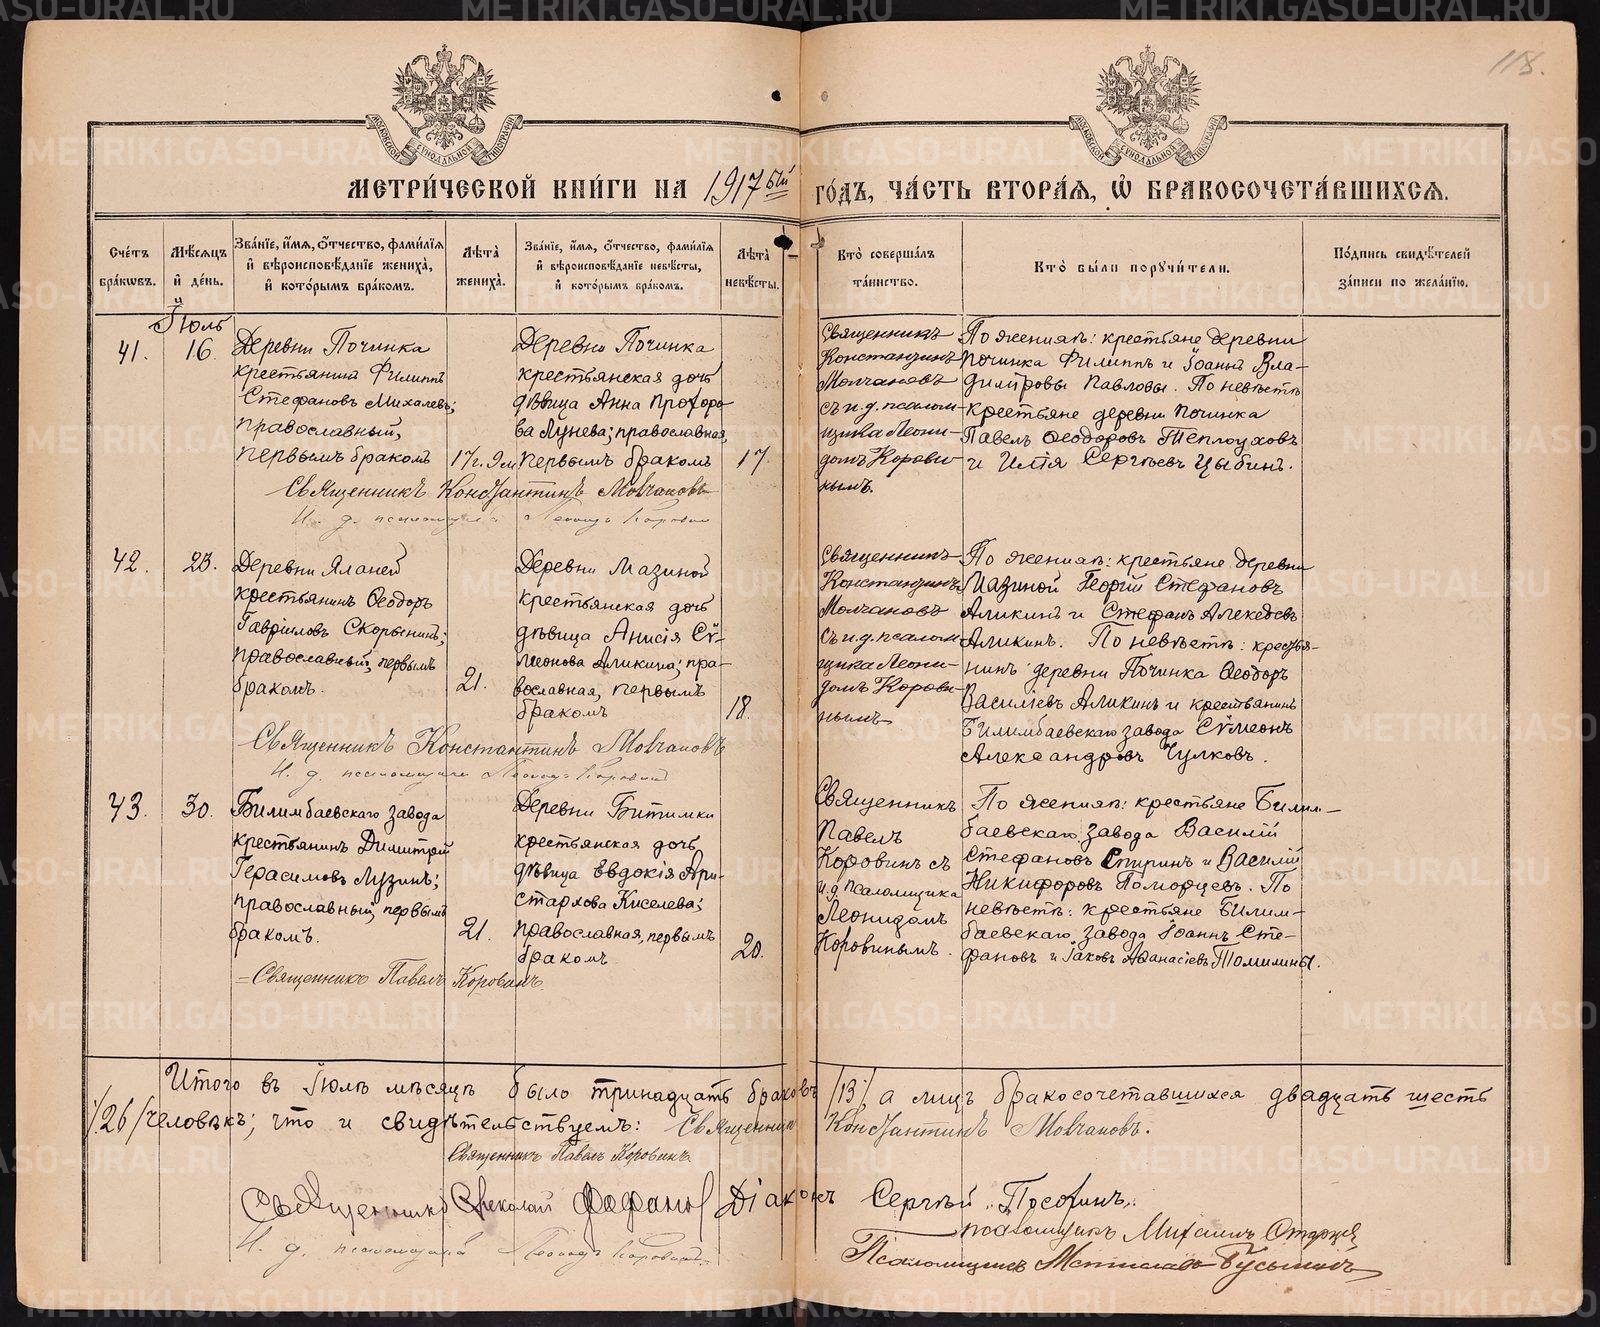 118.
МОСКОВСКОЙ СѴНОДАЛЬНОЙ ТИПОГРАФІИ
МОСКОВСКОЙ СѴНОДАЛЬНОЙ ТИПОГРАФІИ
МЕТРИ́ЧЕСКОЙ КНИ́ГИ НА 1917ый ГО́ДЪ, ЧА́СТЬ ВТОРА́Я, Ѡ БРАКОСОЧЕТА́ВШИХСЯ.
Сче́тъ бра́кѡвъ.
Мѣ́сяцъ и́ де́нь.
Зва́нїе, и́мя, ѻ҆́тчество, фами́лїя и҆ вѣроисповѣ́данїе жениха̀, и҆ кото́рымъ бра́комъ.
Лѣта̀ жениха̀.
Зва́нїе, и́мя, ѻ҆́тчество, фами́лїя и҆ вѣроисповѣ́данїе невѣ́сты, и҆ кото́рымъ бра́комъ.
Лѣта̀ невѣ́сты.
Кто̀ соверша́лъ та́инство.
Кто̀ бы́ли порꙋчи́тели.
По́дпись свидѣ́телей за́писи по жела́нїю.
Іюль
41.
16.
Деревни Починка
крестьянинъ Филиппъ
Стефановъ Михалевъ;
православный,
первымъ бракомъ
17 г. 9 м
Деревни Починка
крестьянская дочь
дѣвица Анна Прохоро
ва Лунева; православная,
первымъ бракомъ
17.
Священникъ
Константинъ
Молчановъ
съ и. д. псалом-
щика Леони-
домъ Корови-
нымъ.
По женихѣ: крестьяне деревни
Починка Филиппъ и Іоаннъ Вла-
димировы Павловы. По невѣстѣ
крестьяне деревни Починка
Павелъ Ѳеодоровъ Теплоуховъ
и Илія Сергѣевъ Цыбинъ.
Священникъ Константинъ Молчановъ
И. д. псаломщика Леонидъ Коровин
42.
23.
Деревни Яланей
крестьянинъ Ѳеодоръ
Гавріиловъ Скорынинъ;
православный, первымъ
бракомъ.
21.
Деревни Мазиной
крестьянская дочь
дѣвица Анисія Сѵ-
меонова Аликина; пра-
вославная, первымъ
бракомъ
18.
Священникъ
Константинъ
Молчановъ
съ и. д. псалом
щика Леони-
домъ Корови-
нымъ
По женихѣ: крестьяне деревни
Мазиной Георгій Стефановъ
Аликинъ и Стефанъ Алексѣевъ
Аликинъ. По невѣстѣ: крестья-
нинъ деревни Починка Ѳеодоръ
Василіевъ Аликинъ и крестьянинъ
Билимбаевскаго завода Сѵмеонъ
Александровъ Чулковъ.
Священникъ Константинъ Молчановъ
И. д. псаломщика Леонидъ Коровин
43.
30.
Билимбаевскаго завода
крестьянинъ Димитрій
Герасимовъ Лузинъ;
православный, первымъ
бракомъ.
21.
Деревни Битимки
крестьянская дочь
дѣвица Евдокія Ари-
стархова Киселева;
православная, первымъ
бракомъ
20.
Священникъ
Павелъ
Коровинъ съ
и. д. псаломщика
Леонидомъ
Коровинымъ.
По женихѣ: крестьяне Билим-
баевскаго завода Василій
Стефановъ Спиринъ и Василій
Никифоровъ Поморцевъ. По
невѣстѣ: крестьяне Билим-
баевскаго завода Іоаннъ Сте-
фановъ и Іаковъ Аѳанасіевъ Томилины.
Священникъ Павелъ Коровинъ.
Итого въ Іюлѣ мѣсяцѣ было тринадцать браковъ /13/ а лицъ бракосочетавшихся двадцать шесть
/26/ человѣкъ; что и свидѣтельствуемъ: Священникъ Константинъ Молчановъ.
Священникъ Павелъ Коровинъ
Священникъ Николай Діаконъ Сергѣй
псаломщикъ Михаилъ
И. д. псаломщика Леонидъ Коровинъ
Псаломщикъ
METRIKI.GASO-URAL.RU